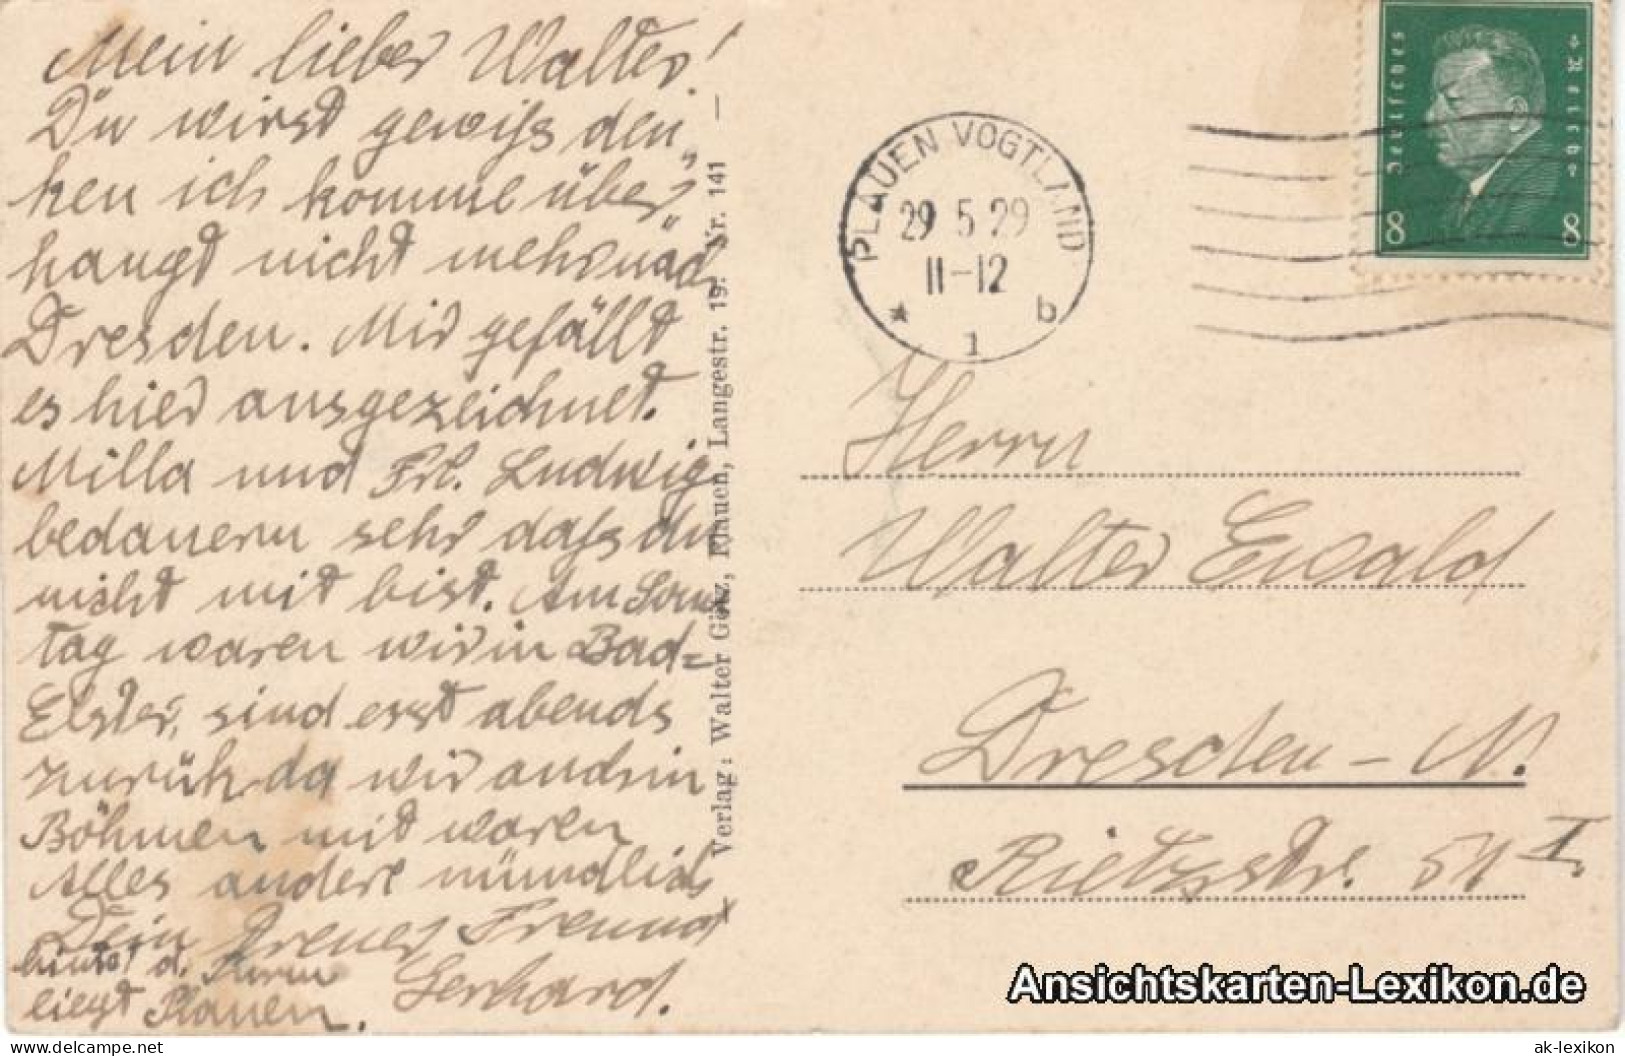 Mein lieber Walter!
Du wirst gewiß den„
ken ich komme über„
haupt nicht mehr nach
Dresden. Mir gefällt
es hier ausgezeichnet.
Milla und Frl. Ludwig
bedauern sehr daß du
nicht mit bist. Am Sonn
tag waren wir in Bad-
Elster, sind erst abends
zurück da wir auch in
Böhmen mit waren
Alles andere mündlich
Dein treuer Freund
Gerhard.
hinter d. Turm
liegt Plauen.
Verlag: Walter Götz, Plauen, Langestr. 19. Nr. 141 —
PLAUEN VOGTLAND
29 5 29
11-12
* 1 b
Deutsches Reich
8 8
Herrn
Walter Ewald
Dresden-N.
Rietzstr. 51 I.
Ansichtskarten-Lexikon.de
www.delcampe.net
ak-lexikon